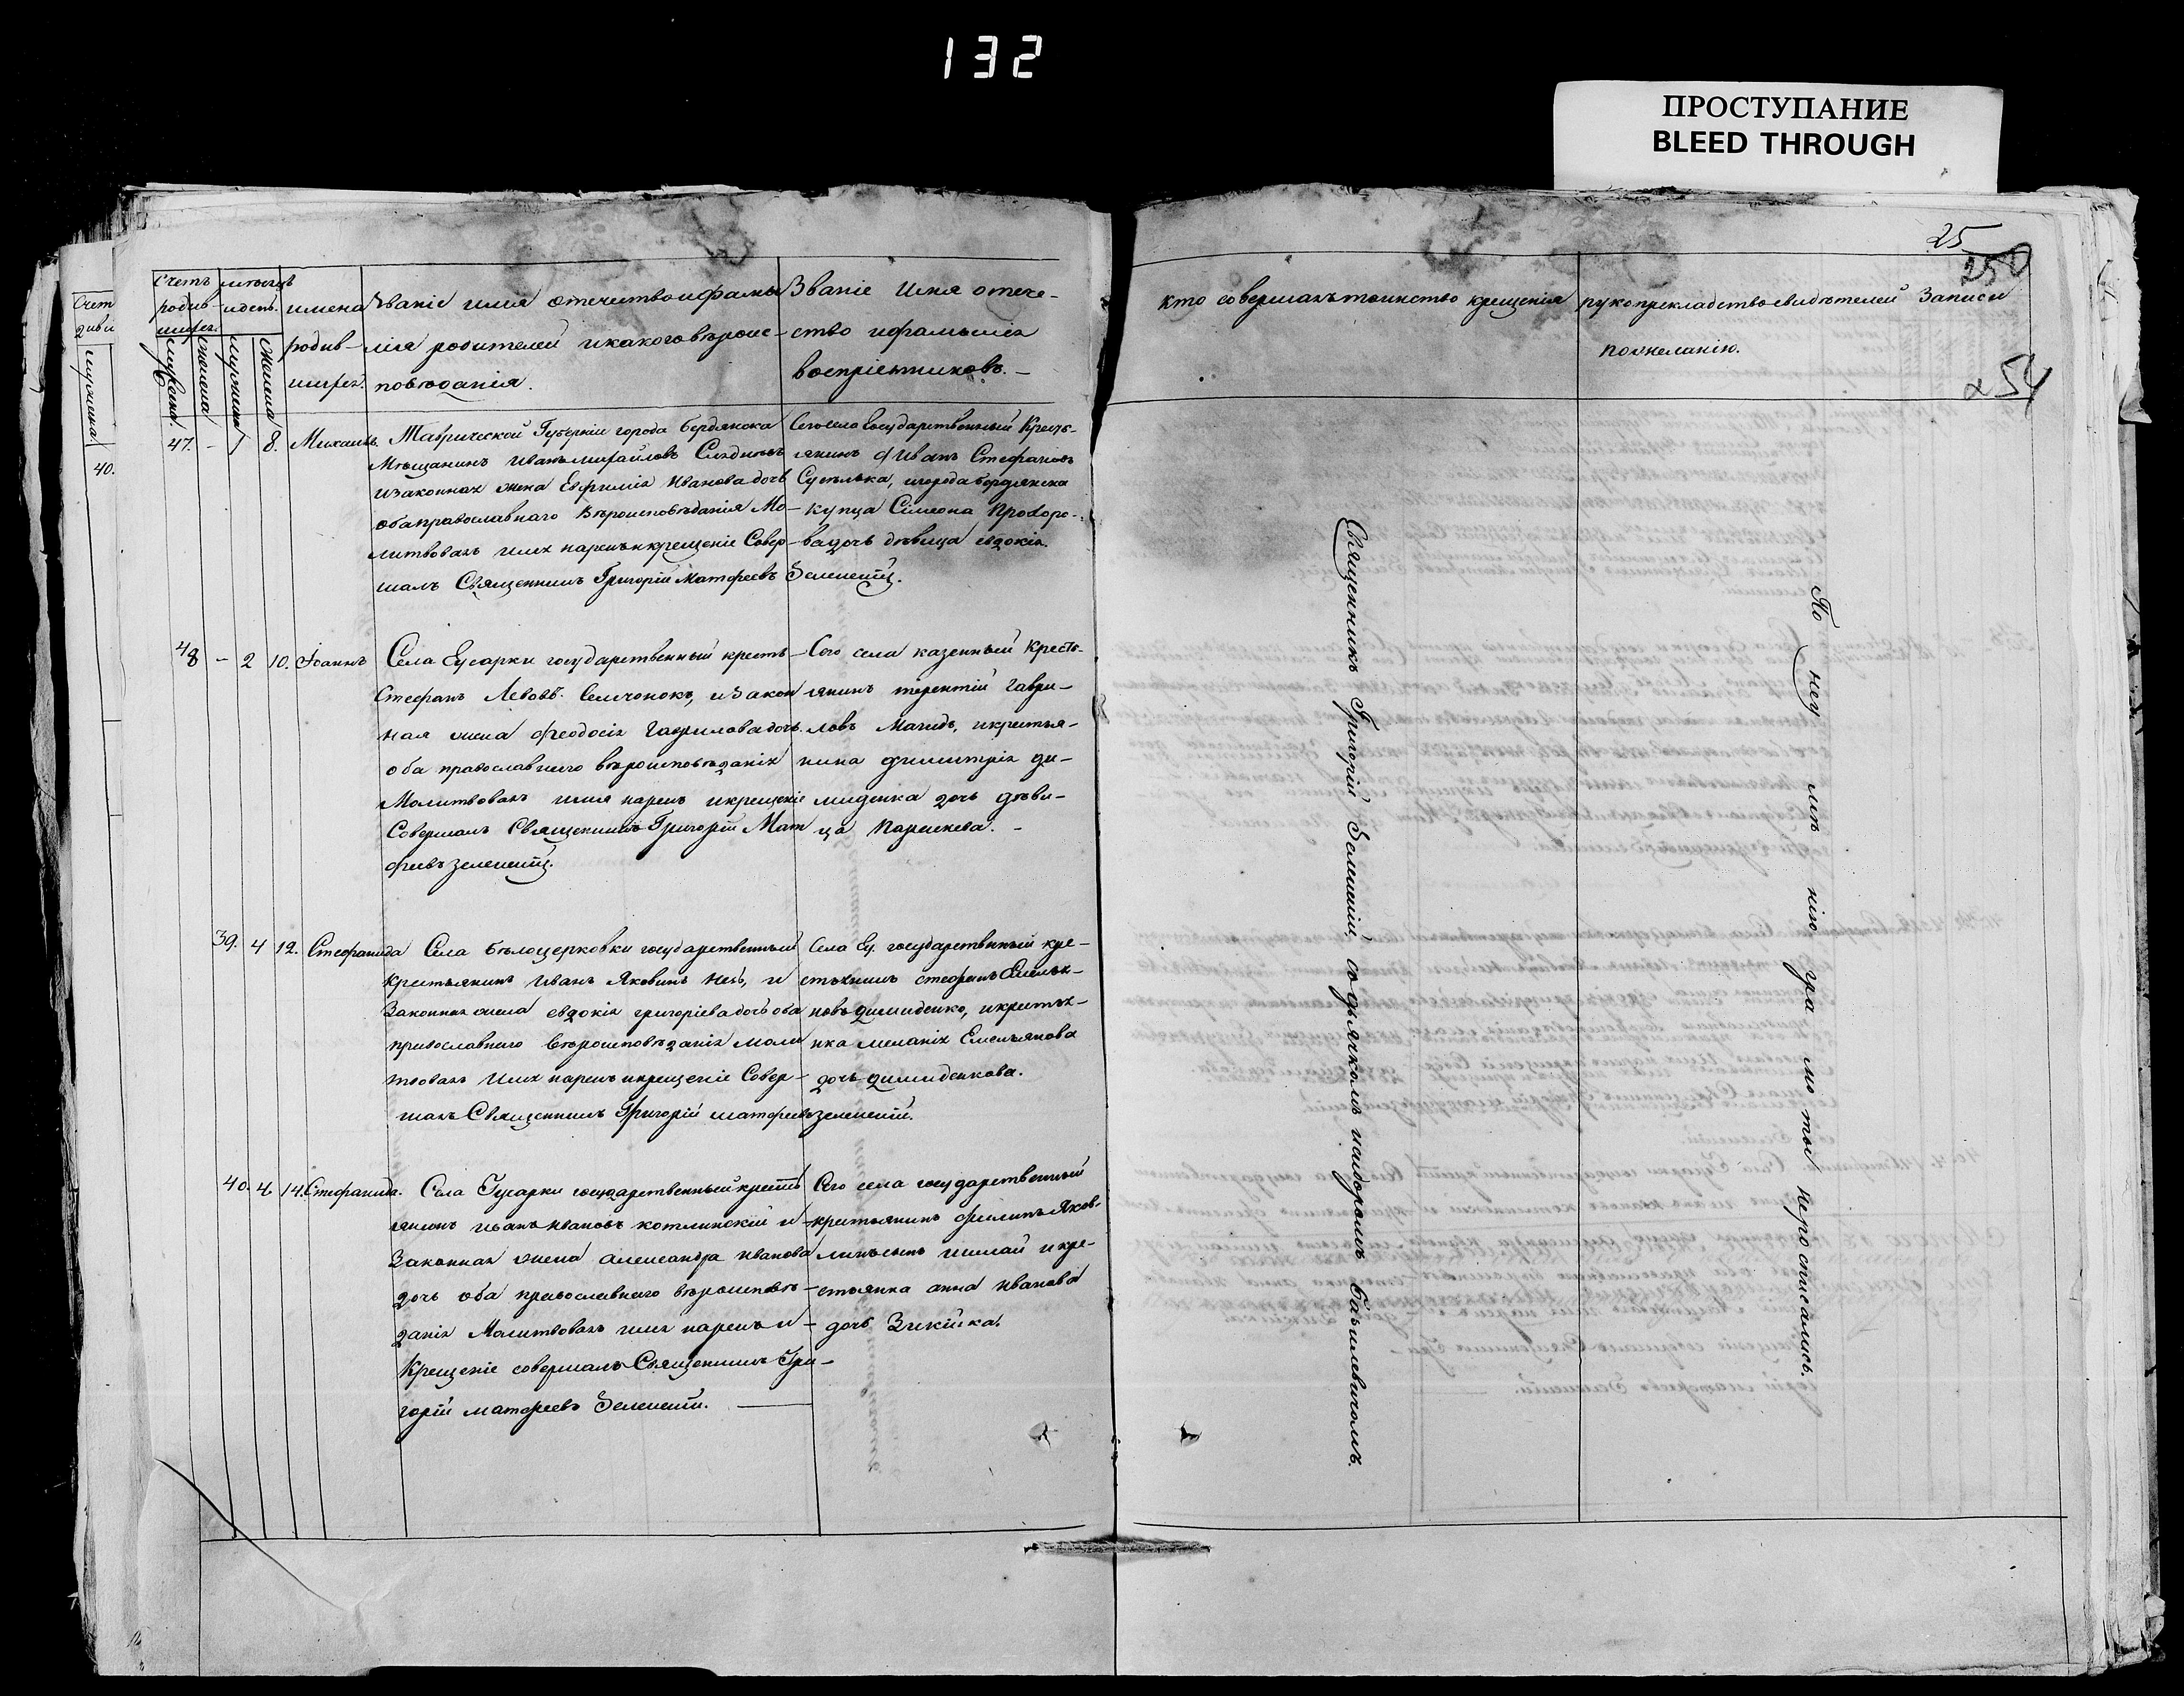 132
ПРОСТУПАНИЕ
BLEED THROUGH
25
250
254
Счетъ
родив-
шихся.
мѣсяцъ
и день.
мужеска
женска
имена
родив-
шихся.
Званіе имя отечество и фами-
лія родителей и какого вѣроис-
повѣданія.
Званіе Имя отече-
ство и фамилія
воспріемниковъ. -
кто совершалъ таинство крещенія
рукоприкладство свидѣтелей Записи
по желанію.
40.
47. - 7 8. Михаилъ.
Таврической Губерніи города Бердянска
Мѣщанинъ Иванъ Михайловъ
и законная жена Евфимія Иванова дочь
оба православнаго Вѣроисповѣданія Мо-
литвовалъ имя нарекъ и крещеніе Совер-
шалъ Священникъ Григорій Матфеевъ Зеленскій.
Сего села Государственный Кресть-
янинъ Иванъ Стефановъ
и города бердянска
купца Сімеона Прохоро-
ва дочь дѣвица евдокія.
48 - 2 10. Іоаннъ
Села Гусарки государственный кресть-
Стефанъ Левовъ Семчонокъ, и закон
ная жена феодосія Гаврилова дочь.
оба православнаго вѣроисповѣданія
Молитвовалъ имя нарекъ и крещеніе
Совершалъ Священникъ Григорій Мат
феевъ зеленскій.
Сего села казенный Кресть-
янинъ терентій Гаври-
ловъ и крестья-
нина димитрія ди-
миденка дочь дѣви-
ца Параскева. -
39. 4 12. Стефанида
Села бѣлоцерковки государственный
крестьянинъ Иванъ Яковинъ и
Законная жена евдокія григоріева дочь оба
православнаго Вѣроисповѣданія моли
твовалъ имя нарекъ и крещеніе Совер-
шалъ Священникъ Григорій матфеевъ зеленскій.
Села Гу. государственный кре-
стьянинъ стефанъ Емелья-
новъ димиденко, и крестья-
нка меланія Емельянова
дочь димиденкова.
40. 4 14. Стефанида.
Села Гусарки государственный кресть
янинъ иванъ ивановъ котлинскій и
Законная жена александра иванова
дочь оба православнаго вѣроисповѣ-
данія Молитвовалъ имя нарекъ и -
Крещеніе совершалъ Священникъ Гри-
горій матфеевъ Зеленскій.
Сего села государственный
крестьянинъ филипъ Яков-
линъ сынъ и кре-
стьянка анна иванова
дочь Зикійка.
Священникъ Григорій Зеленскій, съ дьячкомъ исидоромъ Васильевичомъ.
По неу мѣ нію гра мо ты нерозписались.